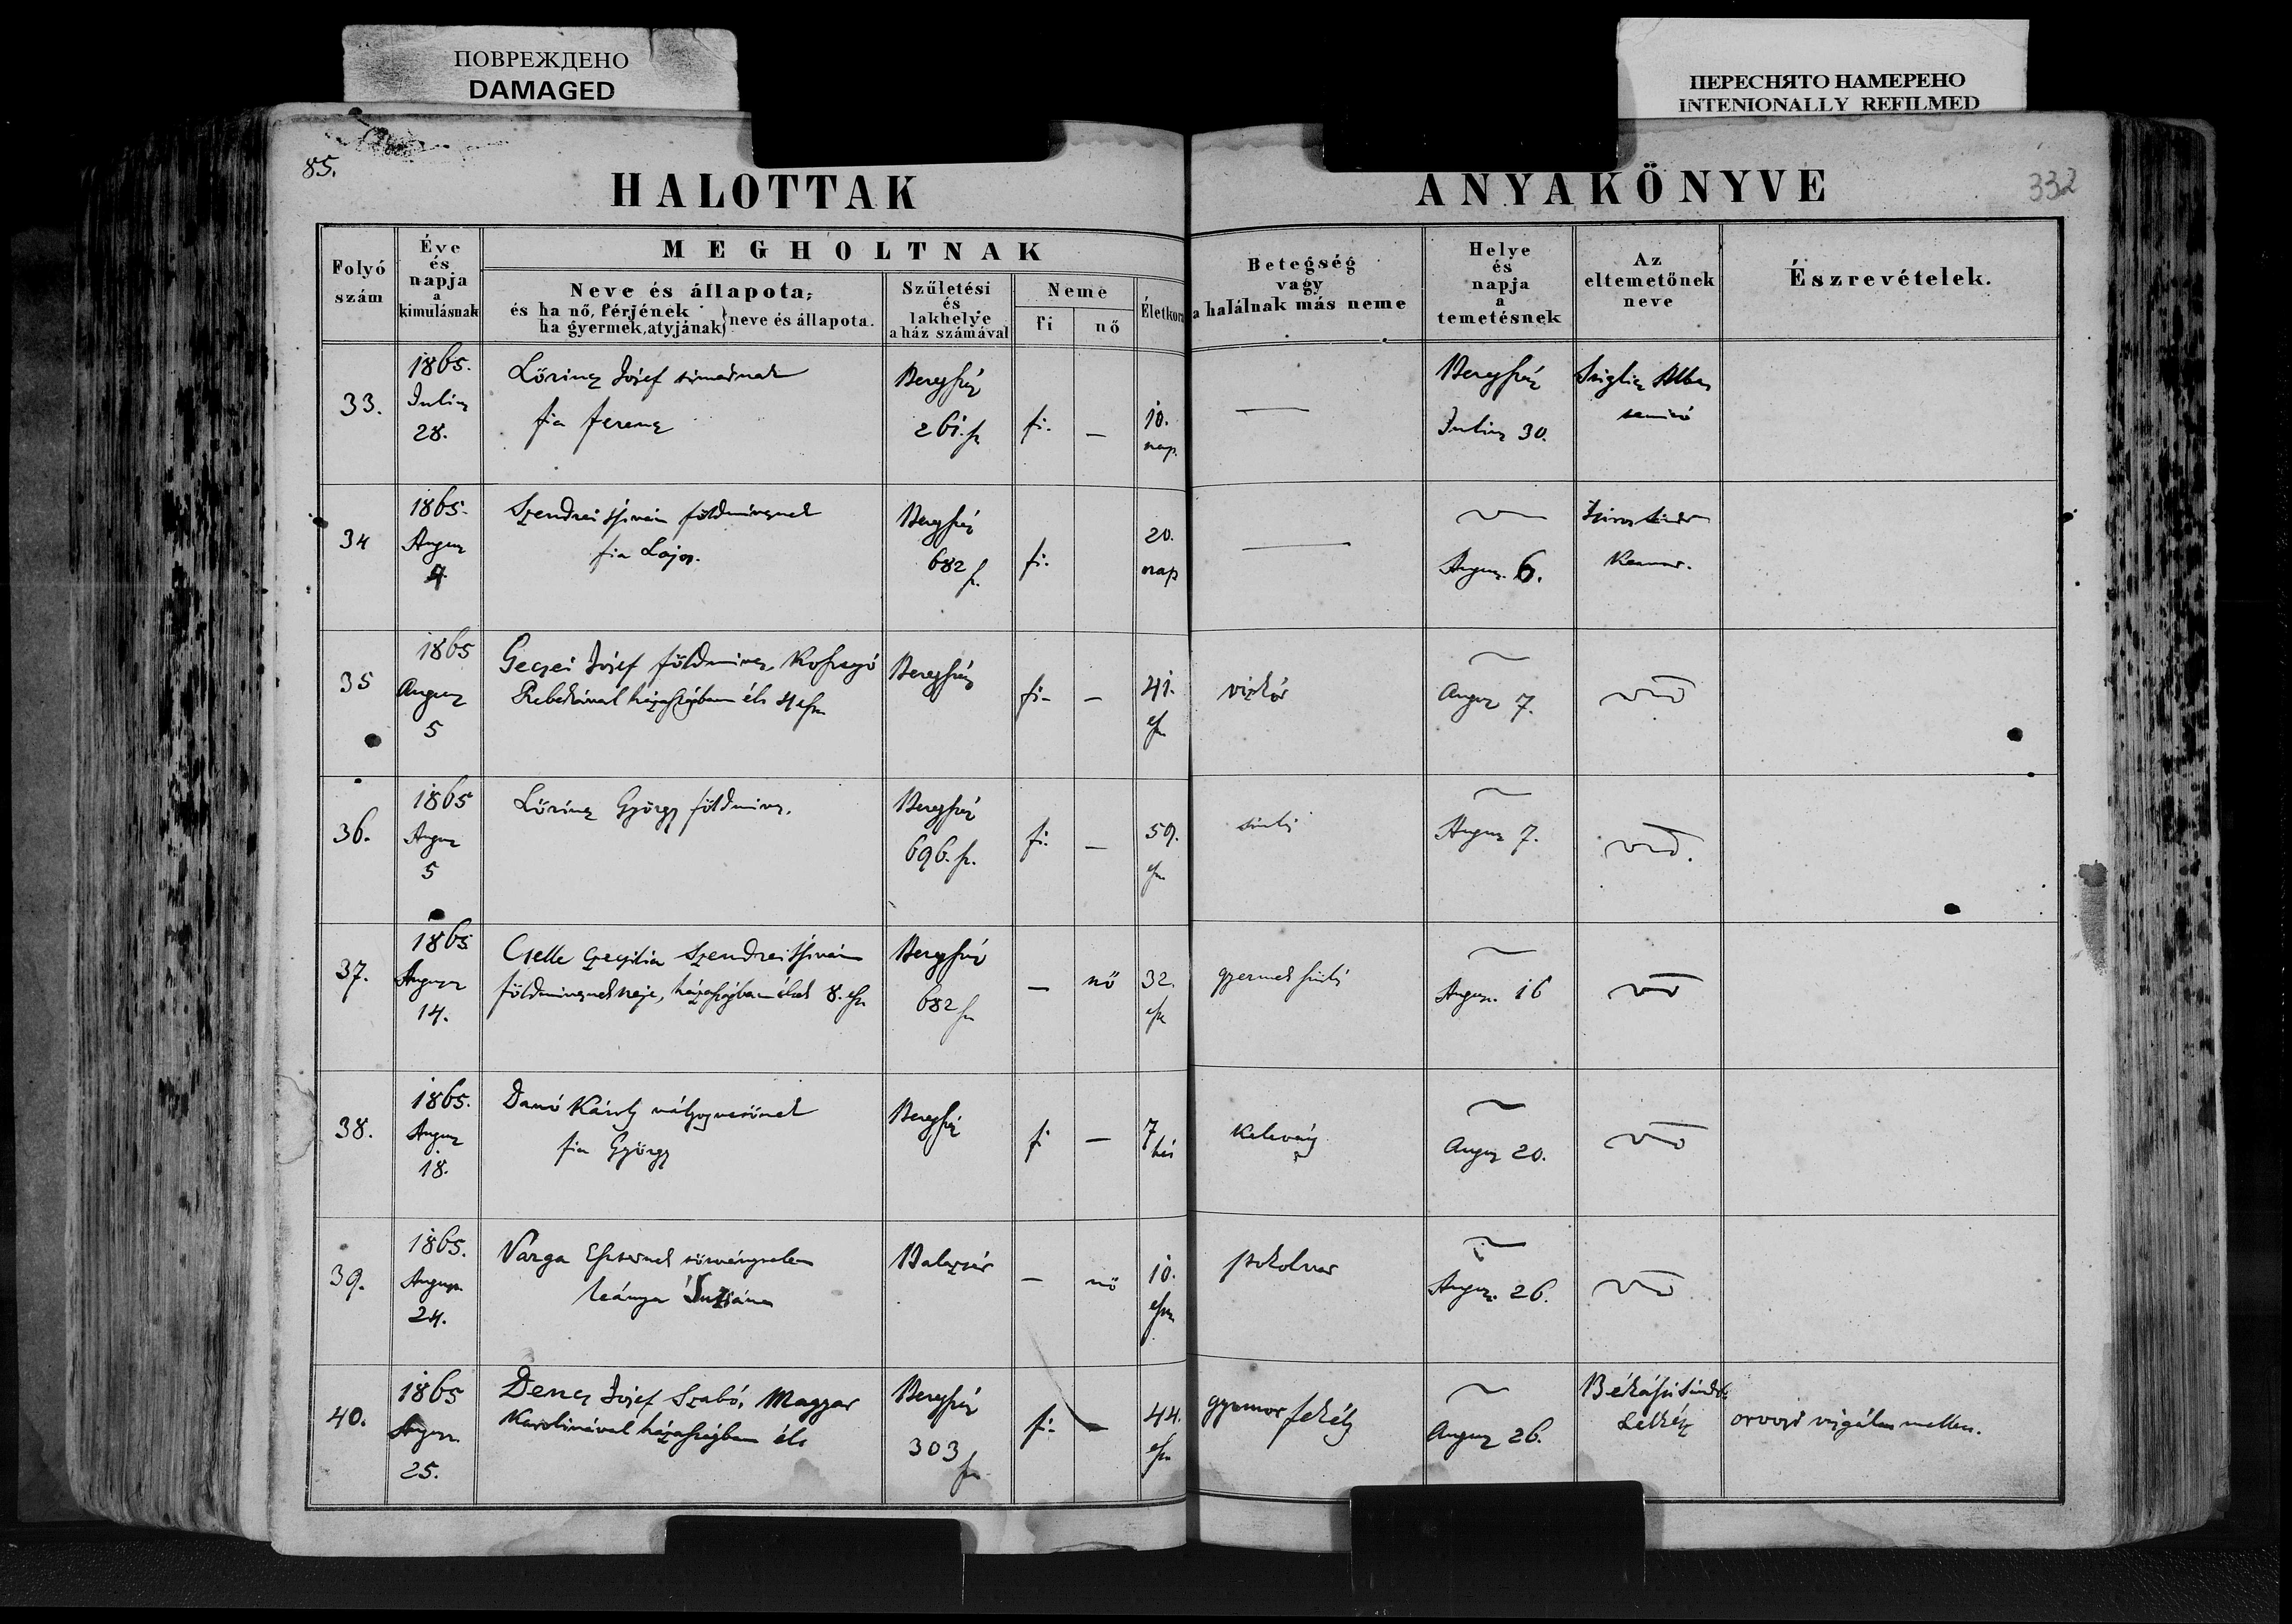 ПОВРЕЖДЕНО
DAMAGED
ПЕРЕСНЯТО НАМЕРЕНО
INTENIONALLY REFILMED
85.
332
HALOTTAK ANYAKÖNYVE
Folyó szám
Éve és napja a kimulásnak
MEGHOLTNAK
Neve és állapota,
és ha nő, férjének
ha gyermek, atyjának} neve és állapota.
Születési és lakhelye a ház számával
Neme
fi
nő
Életkora
Betegség vagy a halálnak más neme
Helye és napja a temetésnek
Az eltemetőnek neve
Észrevételek.
33.
1865.
Julius
28.
Lőrincz József
fia Ferencz
Beregszász
261. sz
fi.
–
10.
nap.
—
Beregszász
Julius 30.
34
1865.
Augusz
4.
Szendrei István földművesnek
fia Lajos.
Beregszász
682 sz.
fi.
20.
nap
—
Augusz. 6.
35
1865
Augusz
5
Geczei József földmives,
Rebekával házasságban élt
Beregszász
fi–
–
41.
esz
vizkór
Augusz 7.
36.
1865
Augusz
5
Lőrincz György földmives.
Beregszász
696. sz.
fi.
–
59.
esz
Augusz 7.
37.
1865
Augusz
14.
Cselle Czeczilia Szendrei István
földmivesnek neje, házasságban éltek 8. esz
Beregszász
682 sz
–
nő
32.
esz
Augusz. 16
38.
1865.
Augusz
18.
Danó Károly vályogvetőnek
fia György
Beregszász
fi
–
7
hó
Kelevény
Augusz 20.
39.
1865.
Augusz
24.
Varga Eszternek törvénytelen
leánya Juliána
Balazsér
–
nő
10.
esz
pokolvar
Augusz. 26.
40.
1865
Augusz
25.
Dencz József Szabó, Magyar
Karolinával házasságban élt
Beregszász
303
sz
fi.
–
44.
esz
gyomor fekély
Augusz 26.
Lelkész
orvosi vizsgálat mellett.